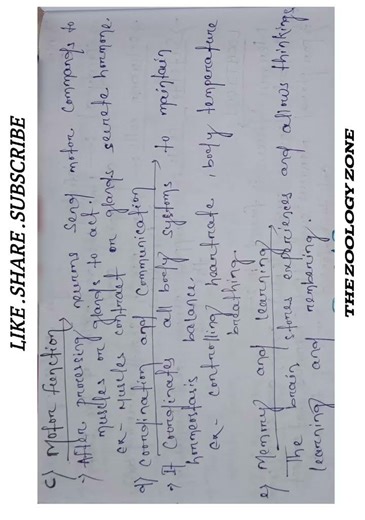 LIKE .SHARE .SUBSCRIBE
c) Motor function
→ After processing, neurons send motor commands to
muscles or glands to act.
ex- Muscles contract or glands secrete hormone.
d) Coordination and Communication
→ It Coordinates all body systems to maintain
homeostasis balance.
ex- controlling heartrate, body temperature
breathing.
e) Memory and learning
The brain stores experiences and allows thinking
learning and rembering.
THE ZOOLOGY ZONE